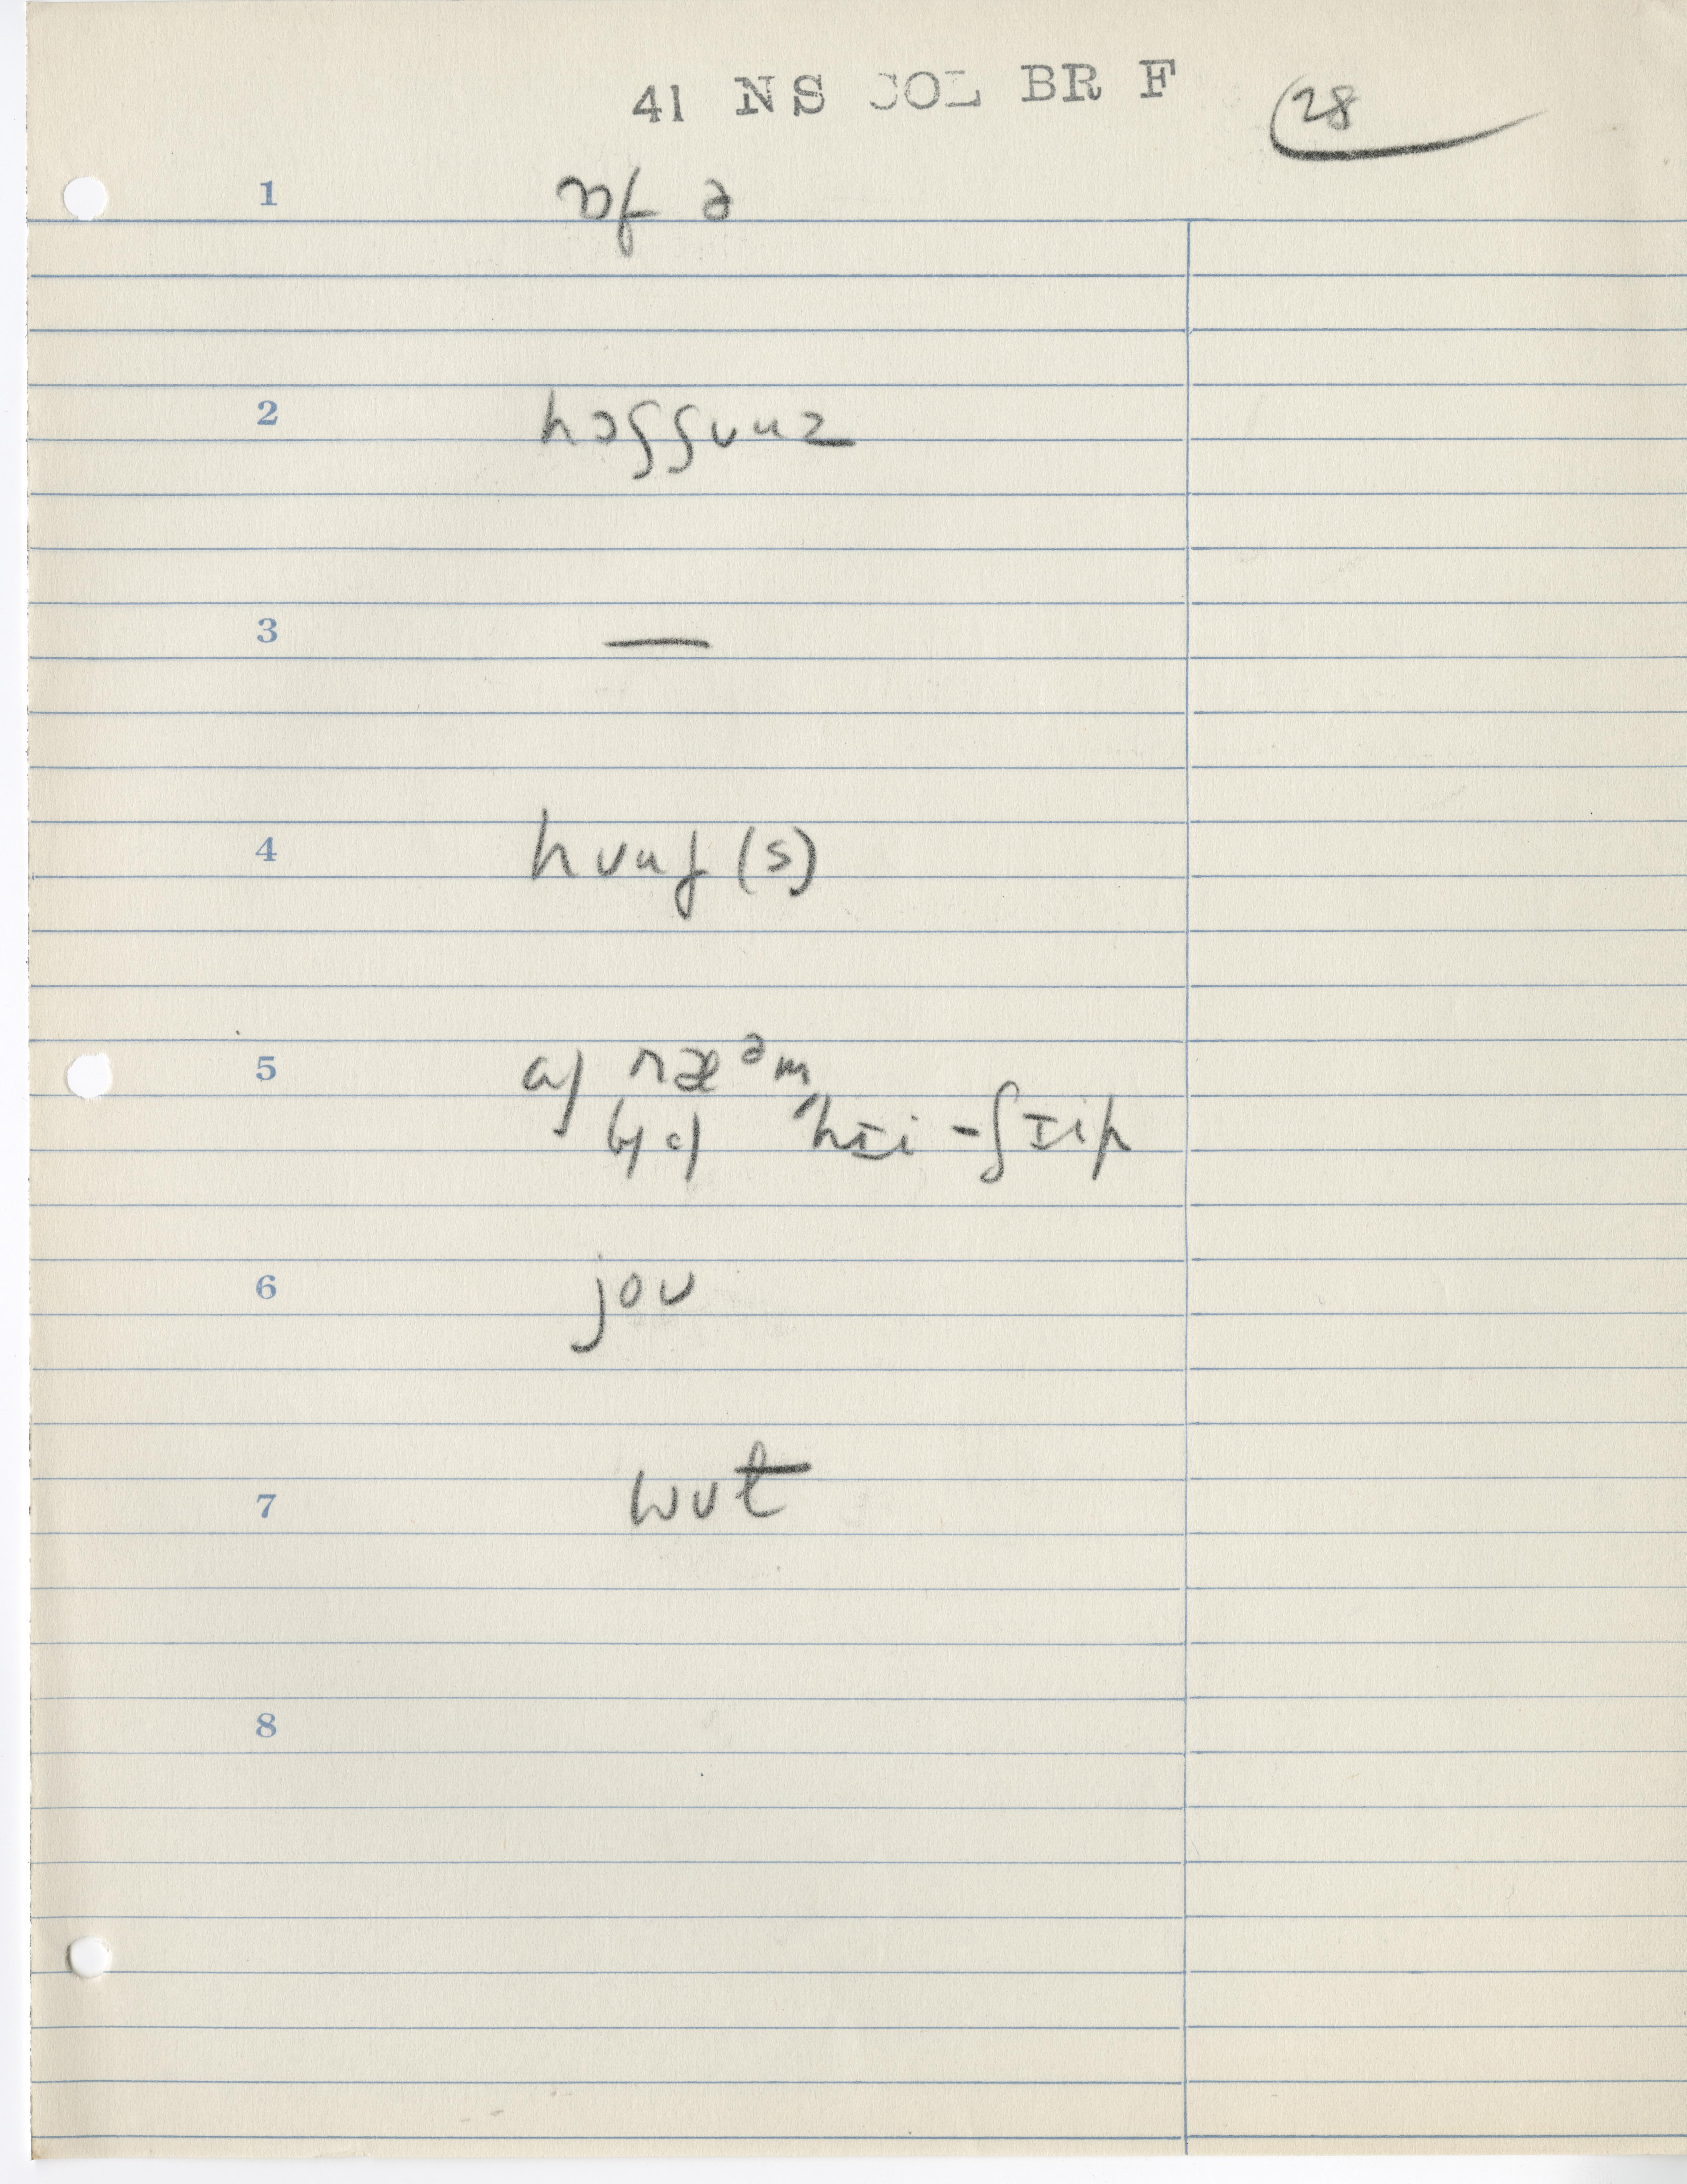 41 NS COL BR F
28
1 ɒf ə
2 hɔʃʃuuz
3 —
4 hʊuf (s)
5 a) ræᵊm
b) c) 'hɪi - ʃɪip
6 joʊ
7 wʊt
8